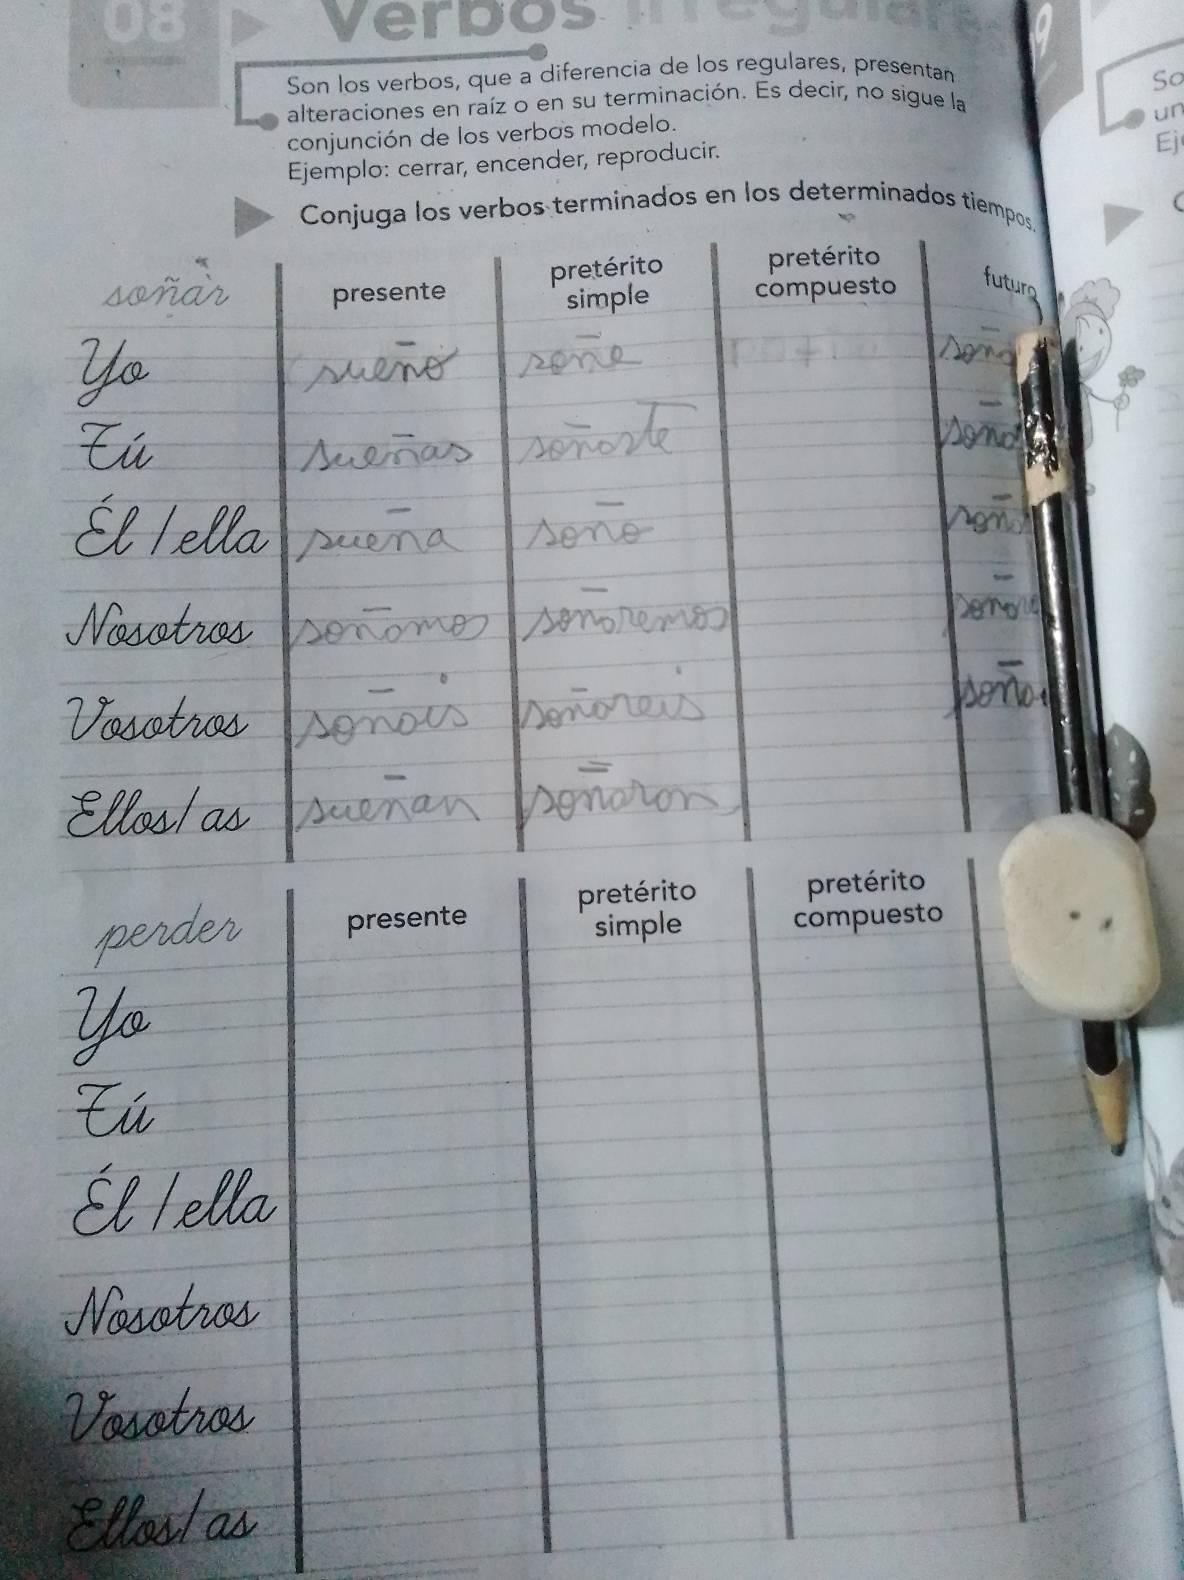 08 Verbos irregulares
Son los verbos, que a diferencia de los regulares, presentan
alteraciones en raíz o en su terminación. Es decir, no sigue la
conjunción de los verbos modelo.
Ejemplo: cerrar, encender, reproducir.
Conjuga los verbos terminados en los determinados tiempos.
soñar presente pretérito simple pretérito compuesto futuro
Yo sueño soñe
Tú sueñas soñaste
Él / ella sueña soño
Nosotros soñamos soñaremos
Vosotros soñais soñareis
Ellos/as sueñan soñaron
perder presente pretérito simple pretérito compuesto
Yo
Tú
Él / ella
Nosotros
Vosotros
Ellos/as